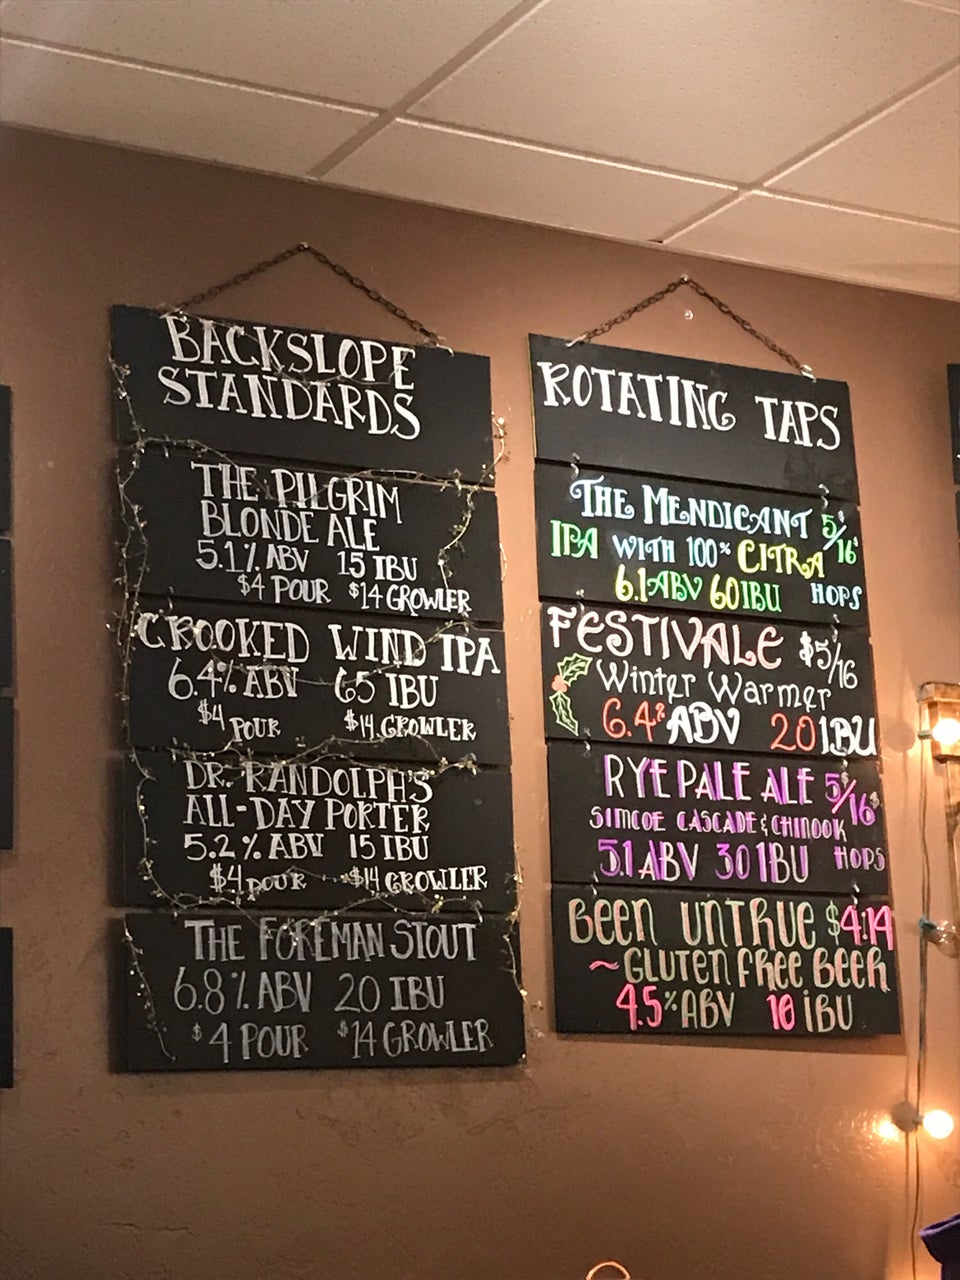 BACKSLOPE
STANDARDS
THE PILGRIM
BLONDE ALE
5.1% ABV 15 IBU
$4 POUR $14 GROWLER
CROOKED WIND IPA
6.4% ABV 65 IBU
$4 POUR $14 GROWLER
DR. RANDOLPH'S
ALL-DAY PORTER
5.2% ABV 15 IBU
$4 POUR $14 GROWLER
THE FOREMAN STOUT
6.8% ABV 20 IBU
$4 POUR $14 GROWLER
ROTATING TAPS
THE MENDICANT 5$/16$
IPA WITH 100% CITRA
6.1 ABV 60 IBU HOPS
FESTIVALE $5/16
Winter Warmer
6.4% ABV 20 IBU
RYE PALE ALE 5$/16$
SIMCOE CASCADE & CHINOOK
5.1 ABV 30 IBU HOPS
BEEN UNTRUE $4:14
~GLUTEN FREE BEER
4.5% ABV 10 IBU